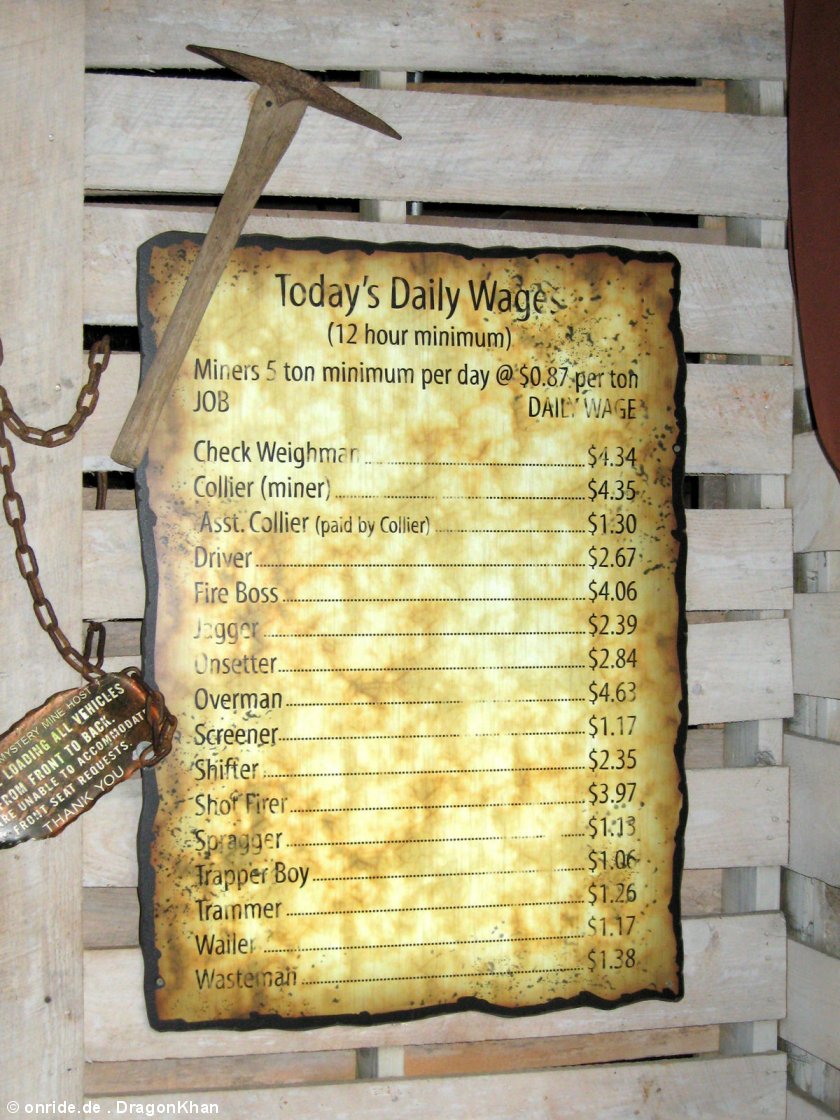 Today's Daily Wages
(12 hour minimum)
Miners 5 ton minimum per day @ $0.87 per ton
JOB DAILY WAGE
Check Weighman $4.34
Collier (miner) $4.35
Asst. Collier (paid by Collier) $1.30
Driver $2.67
Fire Boss $4.06
Jagger $2.39
Onsetter $2.84
Overman $4.63
Screener $1.17
Shifter $2.35
Shot Firer $3.97
Spragger $1.13
Trapper Boy $1.06
Trammer $1.26
Wailer $1.17
Wasteman $1.38
MYSTERY MINE HOST
LOADING ALL VEHICLES
FROM FRONT TO BACK.
ARE UNABLE TO ACCOMMODATE
FRONT SEAT REQUESTS.
THANK YOU
© onride.de . DragonKhan